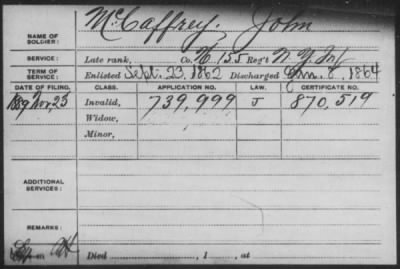 NAME OF SOLDIER: McCaffrey, John
SERVICE: Late rank, Co. K 155 Reg't N.Y. Inf
TERM OF SERVICE: Enlisted Sept. 23, 1862 Discharged Jan. 8, 1864
DATE OF FILING. CLASS. APPLICATION NO. LAW. CERTIFICATE NO.
1889 Nov, 23 Invalid, 739,999 J 870,519
Widow,
Minor,
ADDITIONAL SERVICES:
REMARKS:
Died , 1 , at